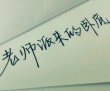 老师派来的卧底